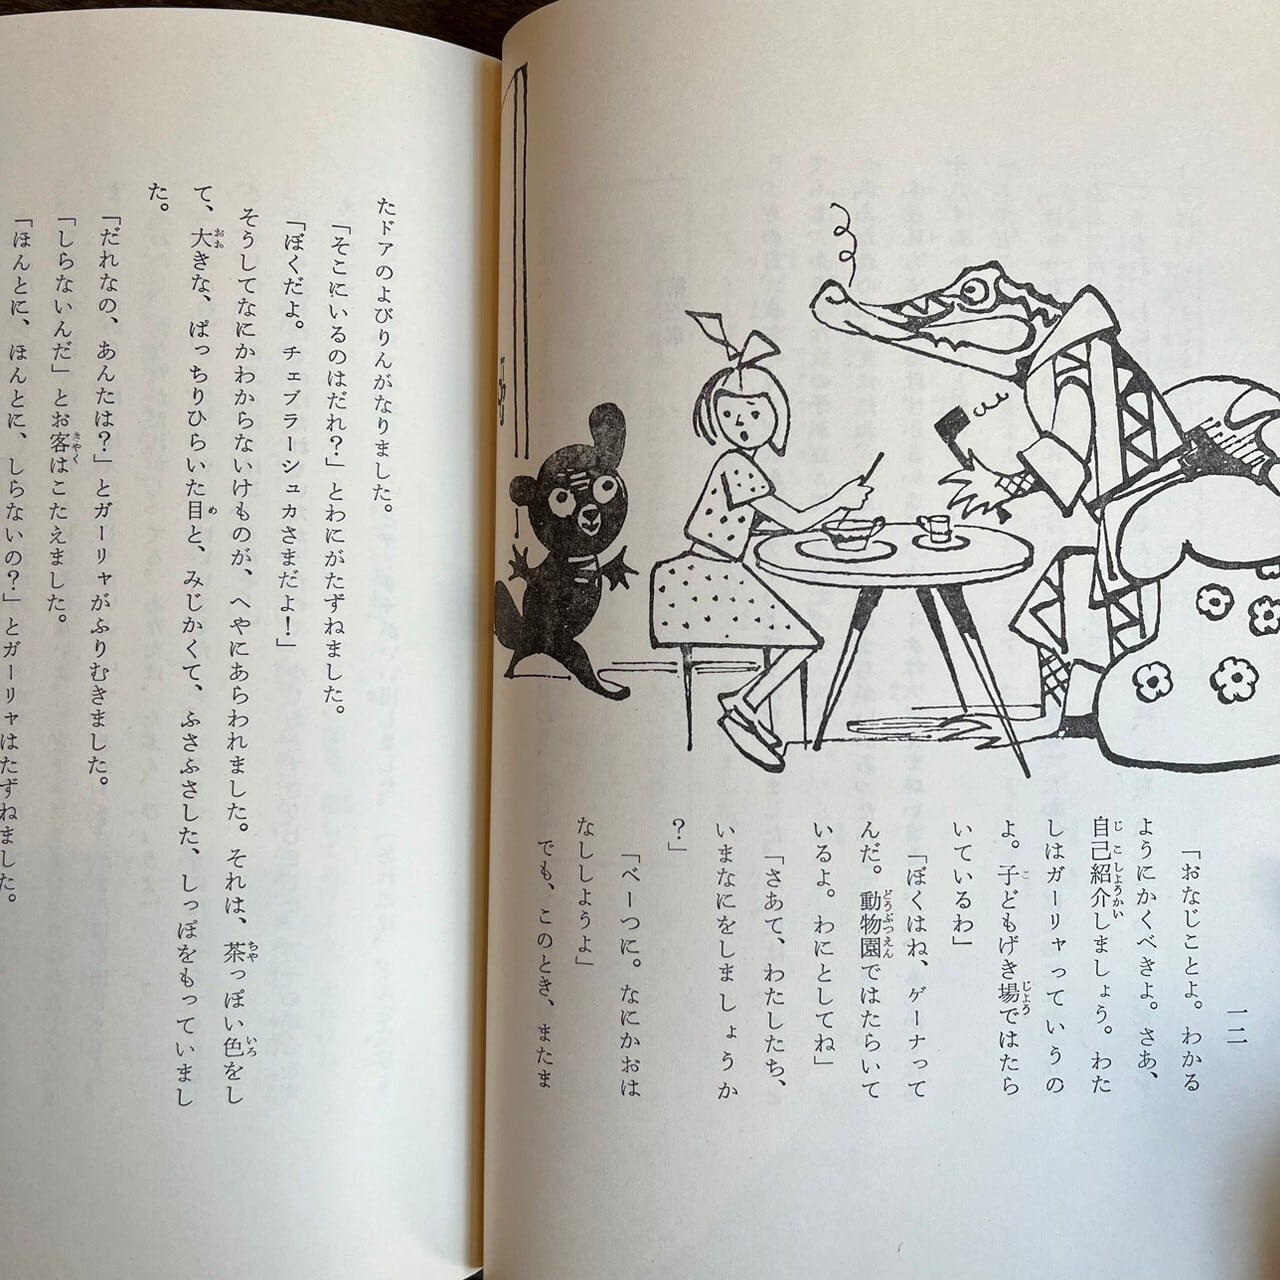 一二
「おなじことよ。わかる
ようにかくべきよ。さあ、
自己紹介しましょう。わた
しはガーリャっていうの
よ。子どもげき場ではたら
いているわ」
「ぼくはね、ゲーナって
んだ。動物園ではたらいて
いるよ。わにとしてね」
「さあて、わたしたち、
いまなにをしましょうか
?」
「べーつに。なにかおは
なししようよ」
でも、このとき、またま
たドアのよびりんがなりました。
「そこにいるのはだれ?」とわにがたずねました。
「ぼくだよ。チェブラーシュカさまだよ!」
そうしてなにかわからないけものが、へやにあらわれました。それは、茶っぽい色をし
て、大きな、ぱっちりひらいた目と、みじかくて、ふさふさした、しっぽをもっていまし
た。
「だれなの、あんたは?」とガーリャがふりむきました。
「しらないんだ」とお客はこたえました。
「ほんとに、ほんとに、しらないの?」とガーリャはたずねました。